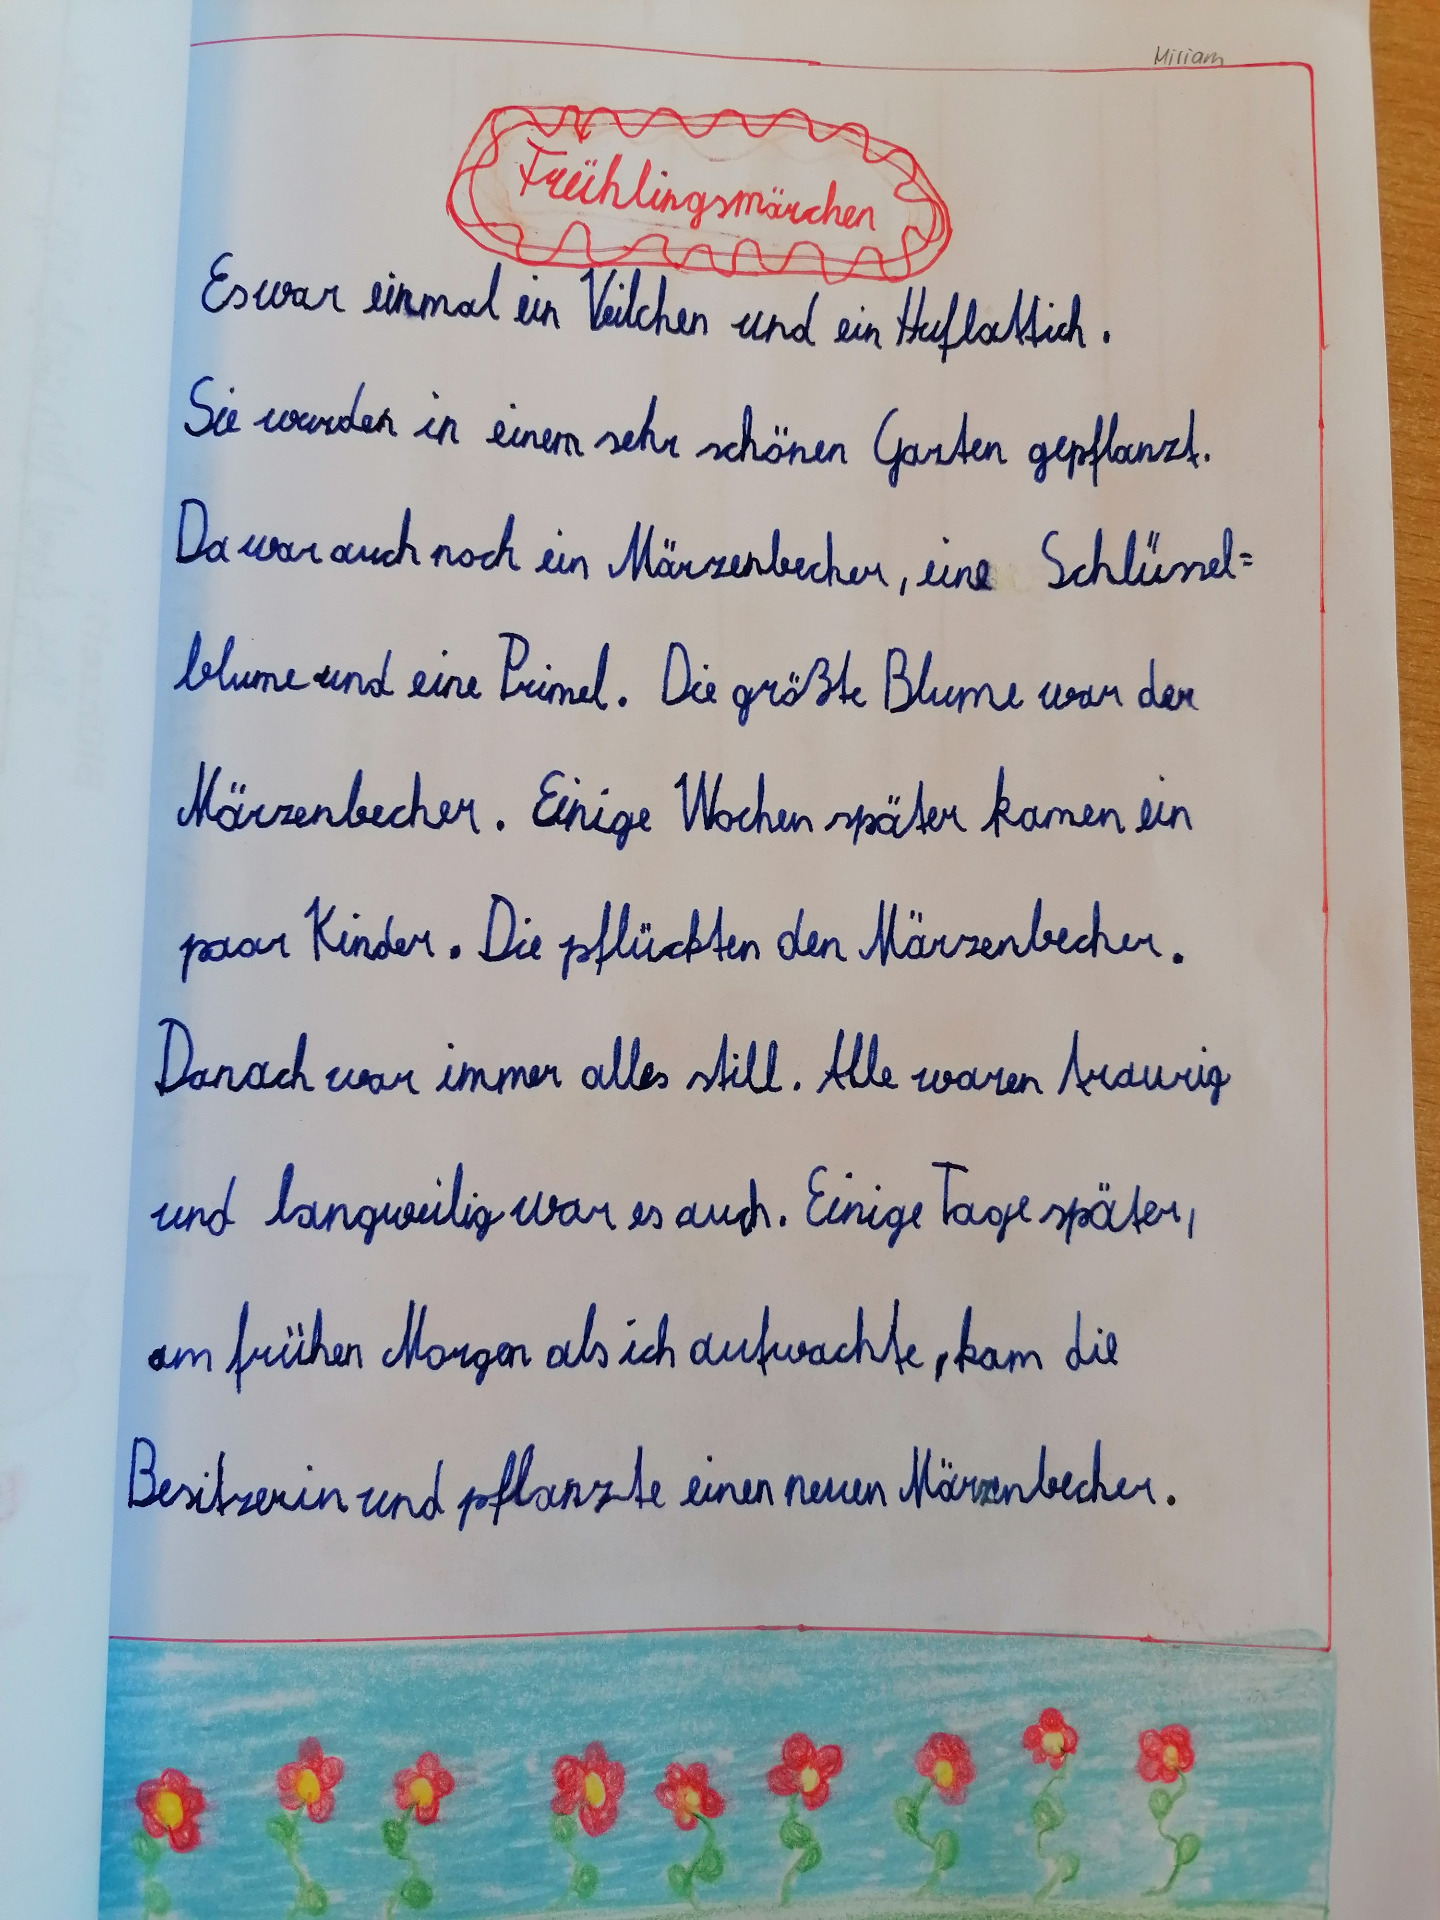 Miriam
Frühlingsmärchen
Es war einmal ein Veilchen und ein Huflattich.
Sie wurden in einem sehr schönen Garten gepflanzt.
Da war auch noch ein Märzenbecher, eine Schlüssel=
blume und eine Primel. Die größte Blume war der
Märzenbecher. Einige Wochen später kamen ein
paar Kinder. Die pflückten den Märzenbecher.
Danach war immer alles still. Alle waren traurig
und langweilig war es auch. Einige Tage später,
am frühen Morgen als ich aufwachte, kam die
Besitzerin und pflanzte einen neuen Märzenbecher.